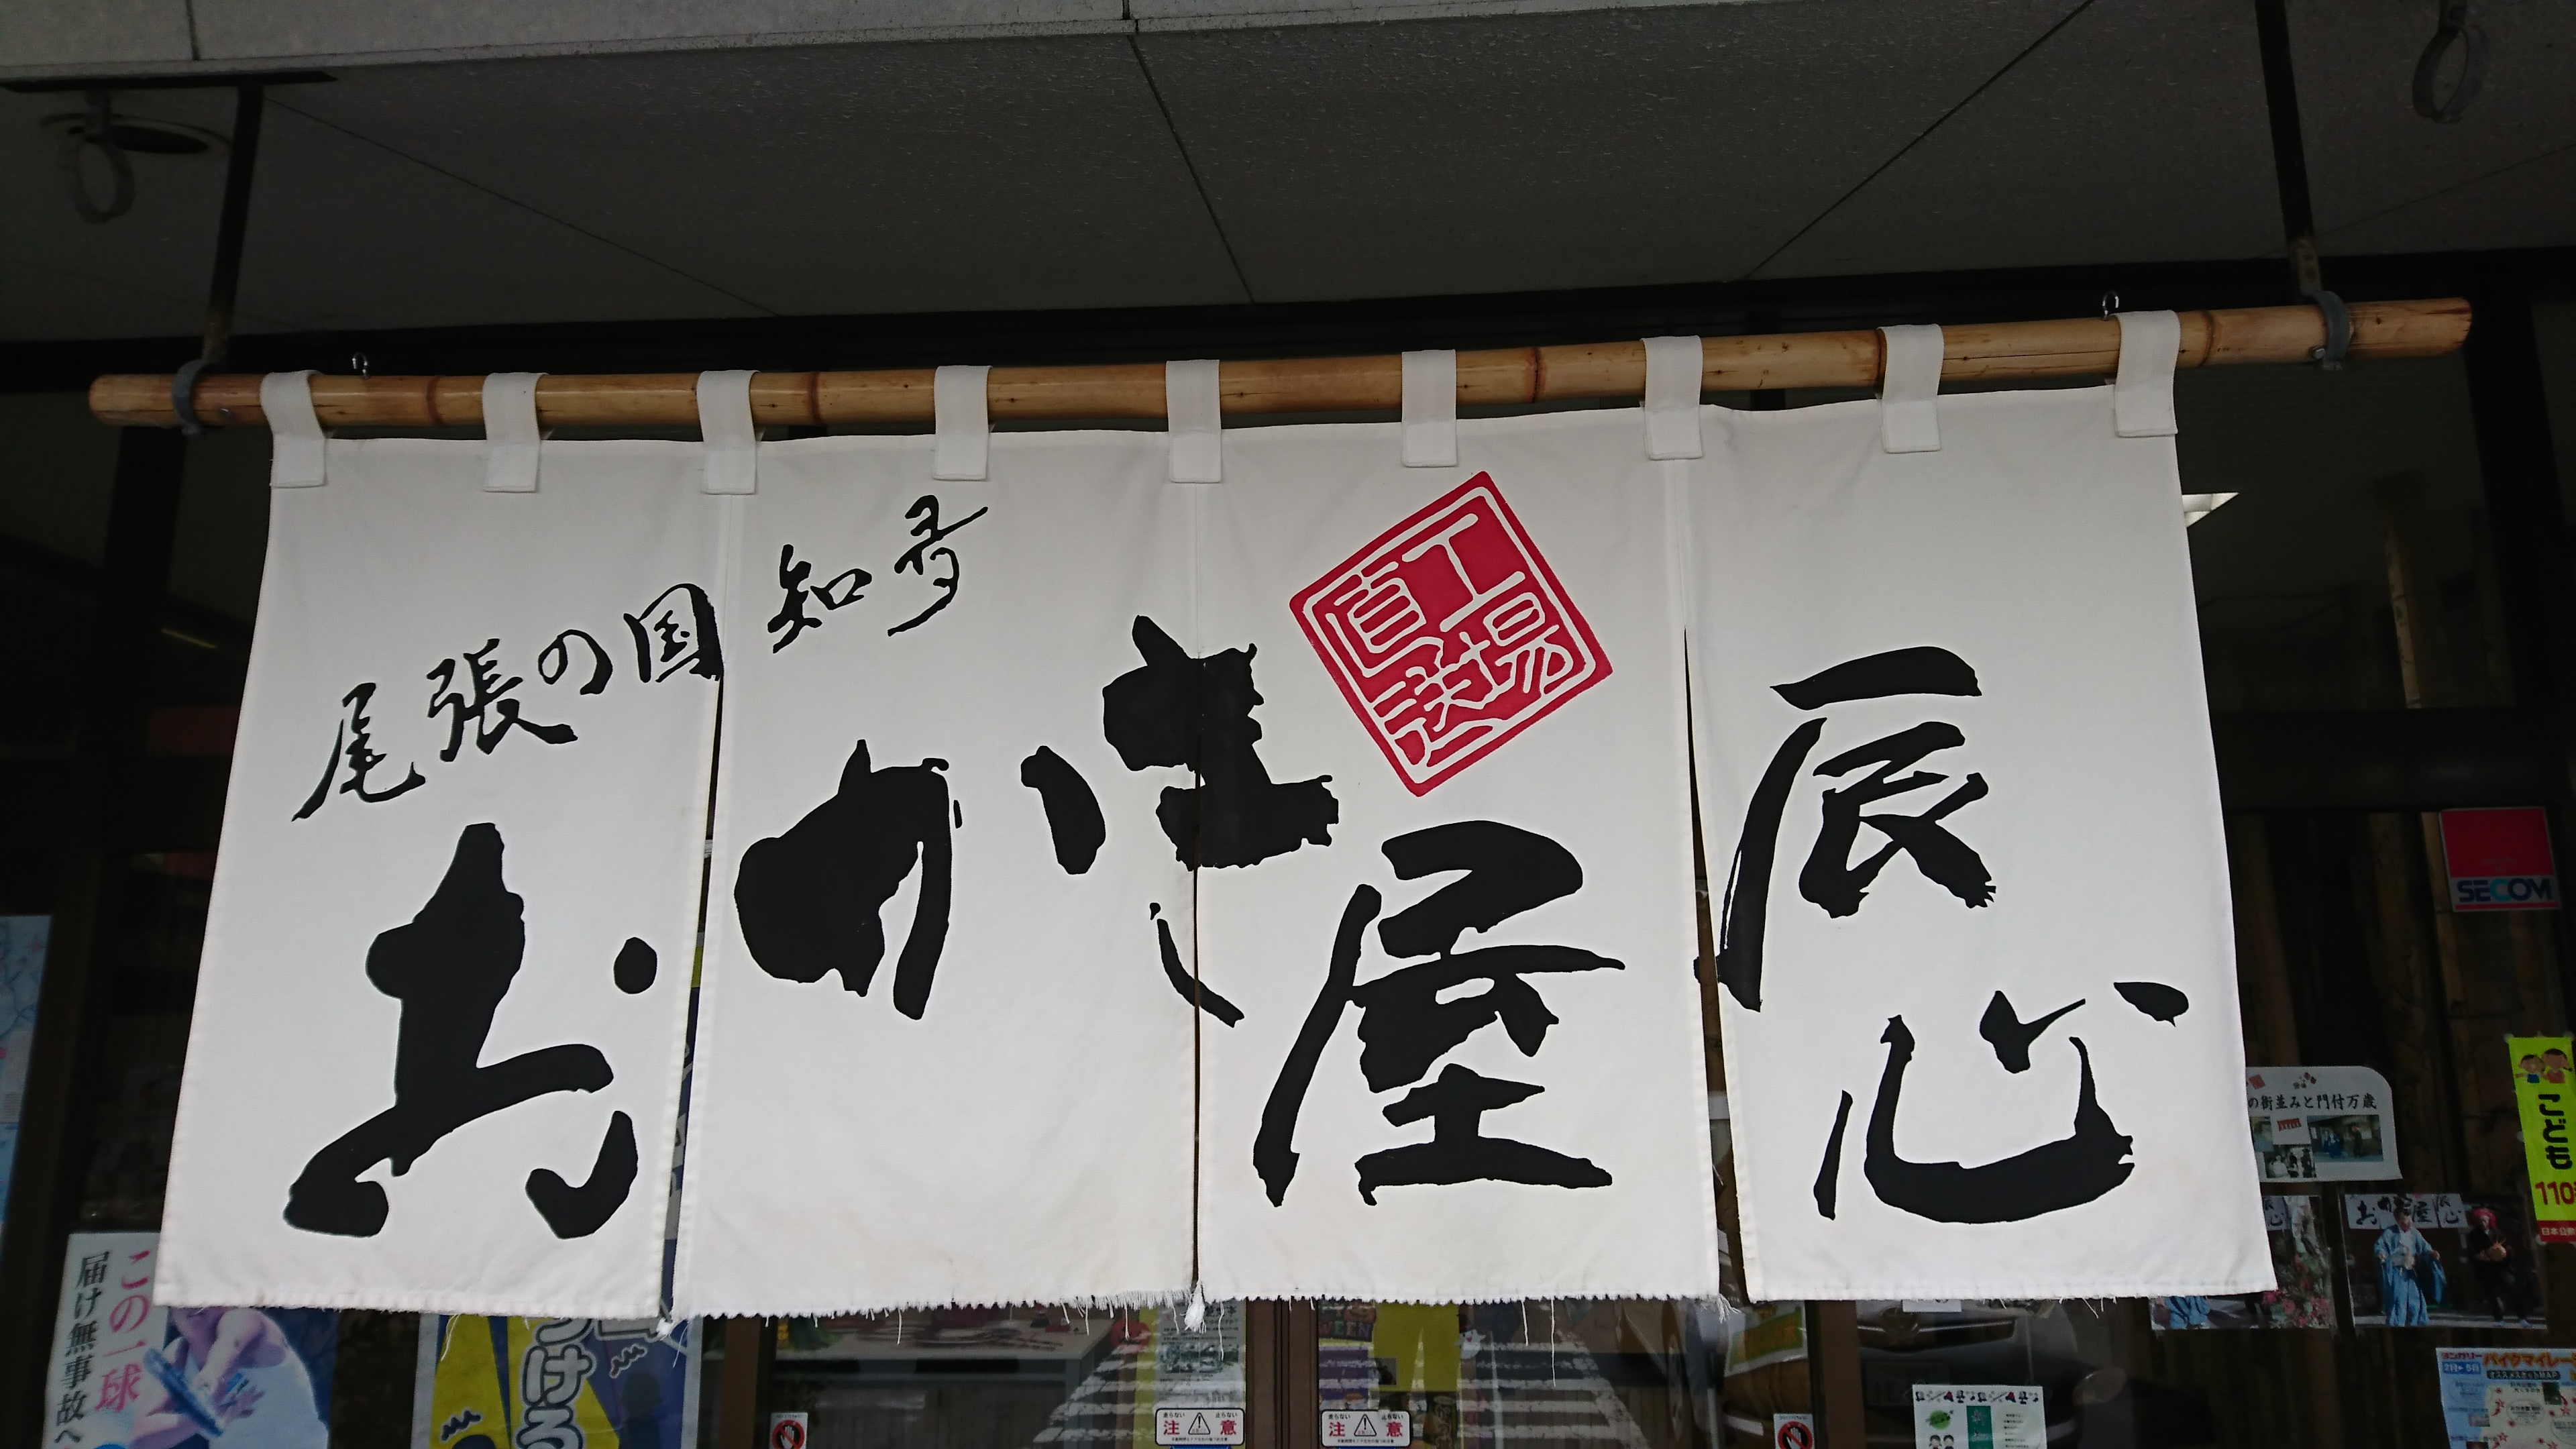 尾張の国 知多
おかき屋 辰心
工場直送
SECOM
の街並みと門付万歳
おかき屋 辰心
こども
110
この一球
届け無事故へ
つける
注意
注意
バイクマイレー